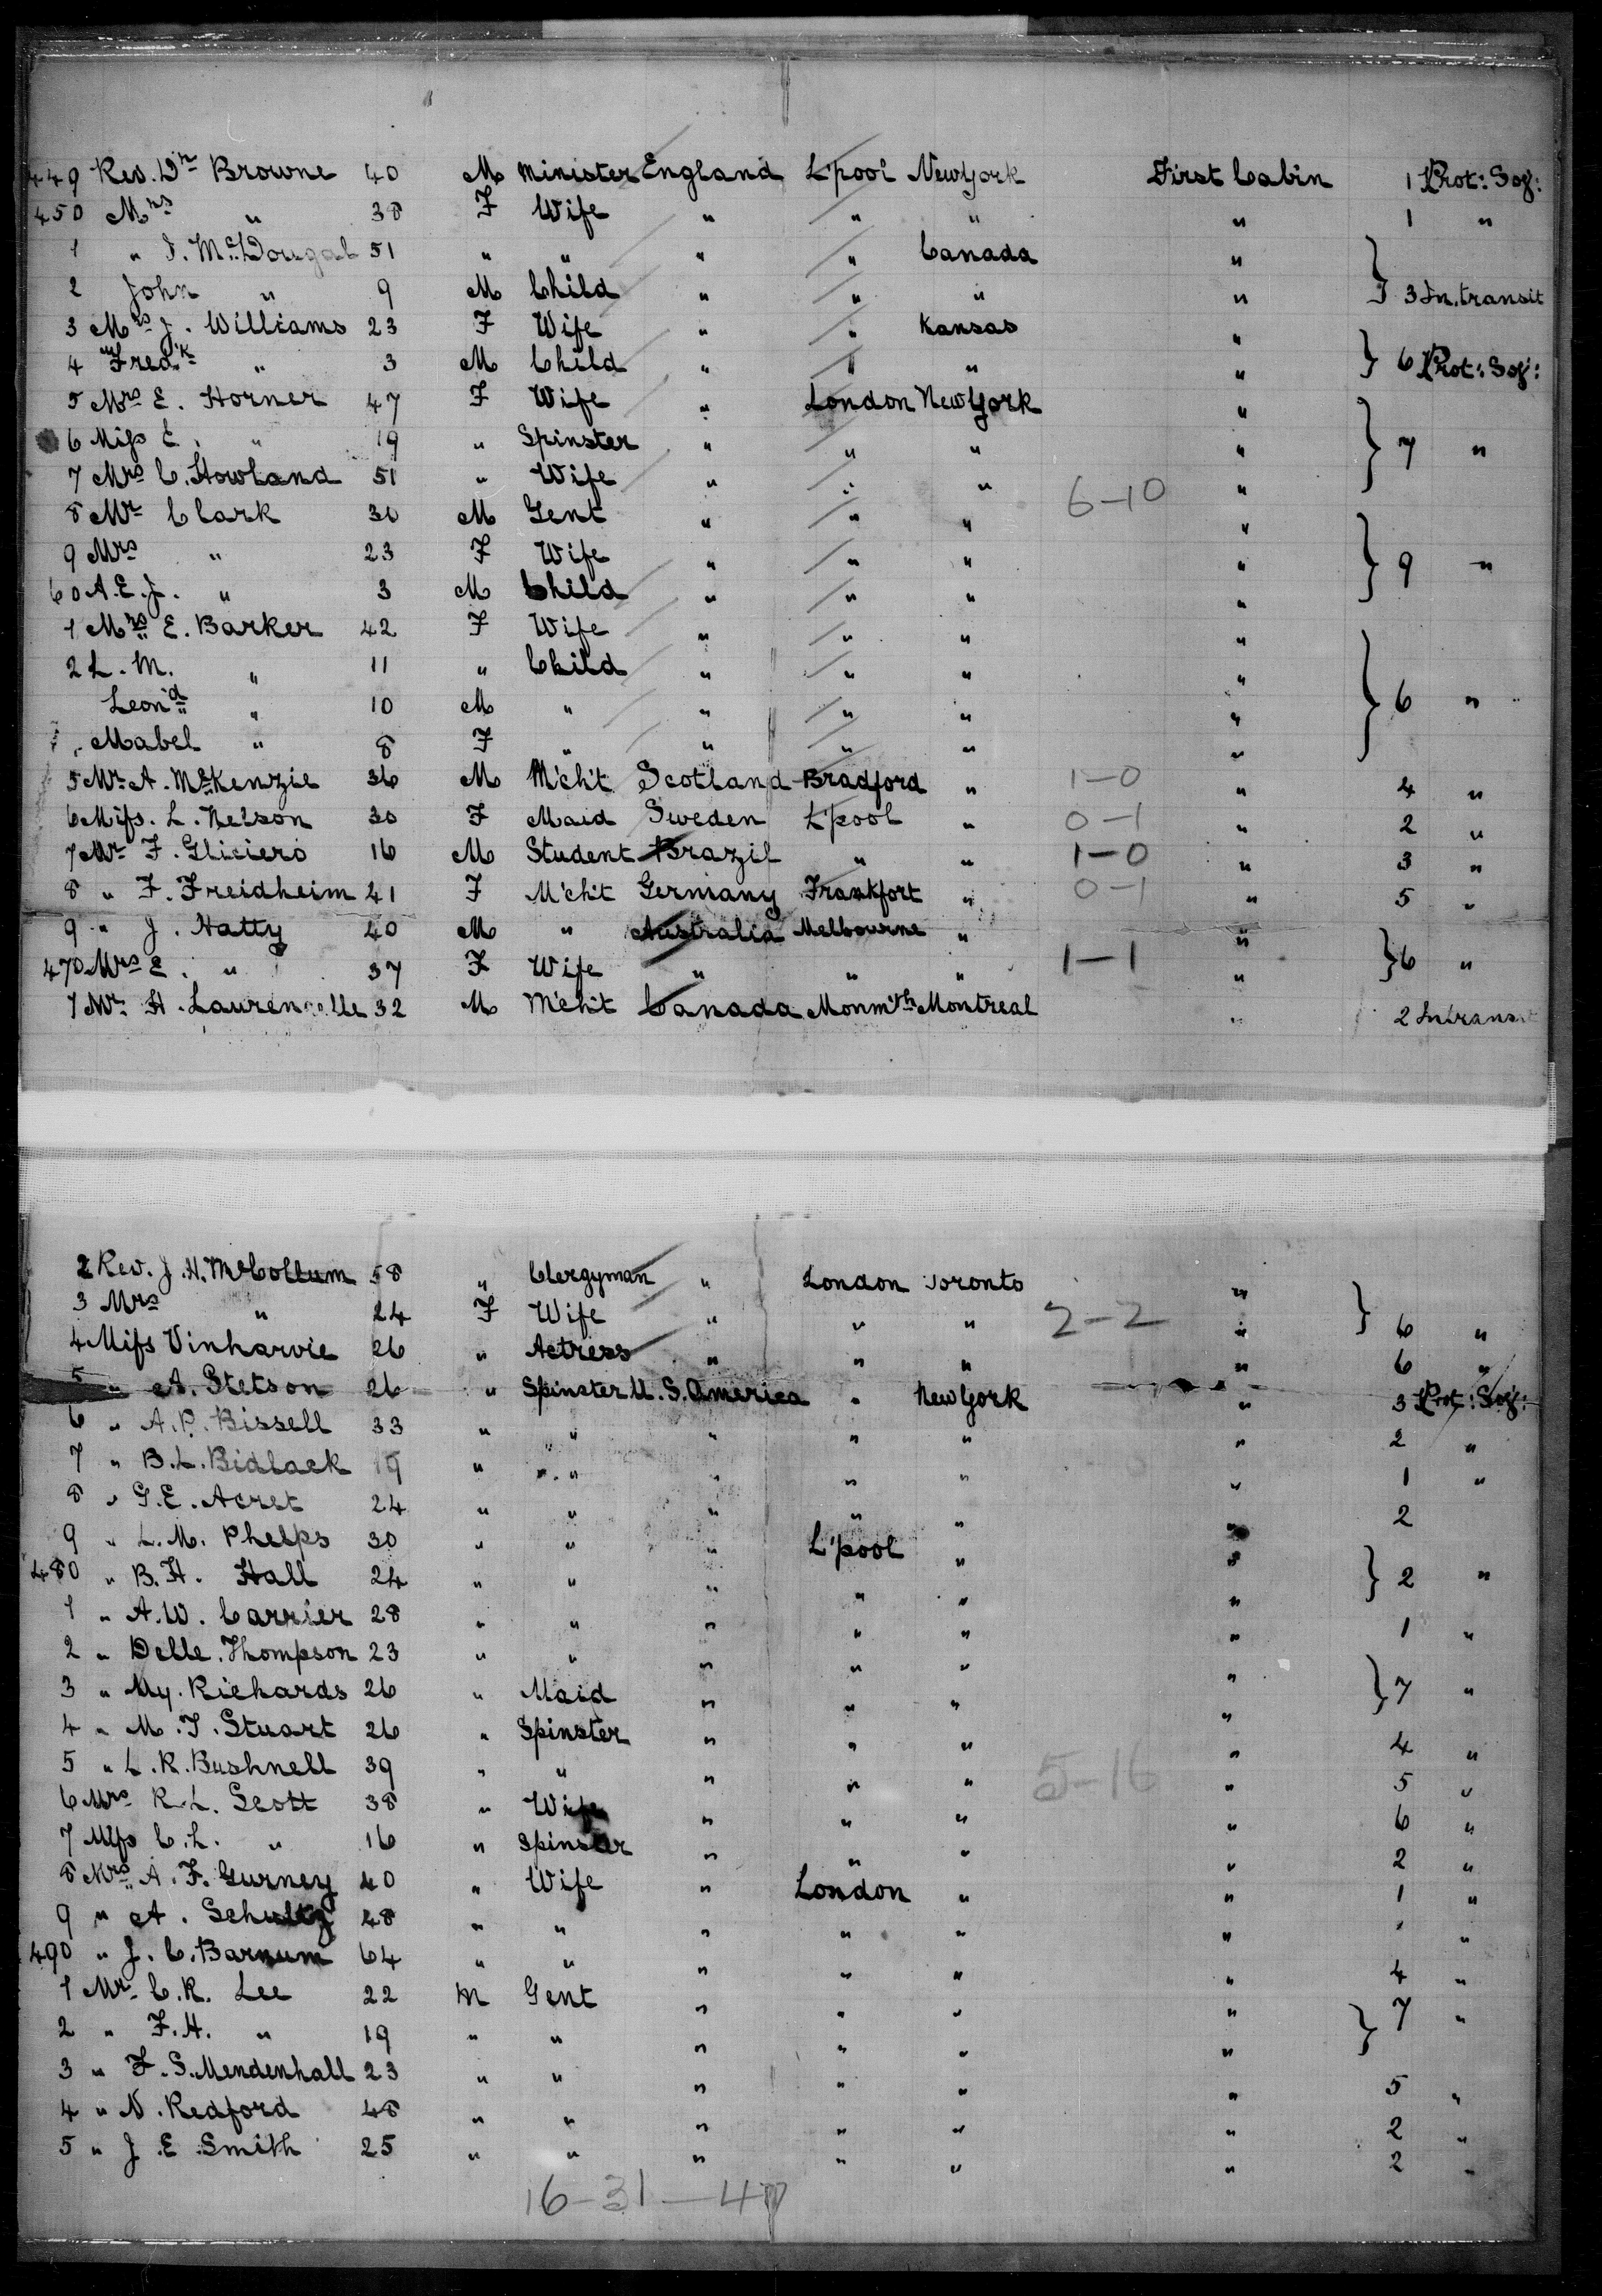 449 Rev. Dr Browne 40 M Minister England L'pool New York First Cabin 1 Prot: Soj:
450 Mrs " 38 F Wife " " " " 1 "
1 " J. McDougal 51 " " " " Canada "
2 John " 9 M Child " " " " } 3 In transit
3 Mrs J. Williams 23 F Wife " " Kansas "
4 Fred'k " 3 M Child " " " " } 6 Prot: Soj:
5 Mrs E. Horner 47 F Wife " London New York "
6 Miss E. " 19 " Spinster " " " " } 7 "
7 Mrs C. Howland 51 " Wife " " " 6-10 "
8 Mr Clark 30 M Gent " " " "
9 Mrs " 23 F Wife " " " " } 9 "
60 A. E. J. " 3 M Child " " " "
1 Mrs E. Barker 42 F Wife " " " "
2 L. M. " 11 " Child " " " "
Leon'd " 10 M " " " " " } 6 "
Mabel " 8 F " " " " "
5 Mr A. McKenzie 36 M M'ch't Scotland Bradford " 1-0 " 4 "
6 Miss. L. Nelson 30 F Maid Sweden L'pool " 0-1 " 2 "
7 Mr F. Gliciero 16 M Student Brazil " " 1-0 " 3 "
8 " F. Freidheim 41 F M'ch't Germany Frankfort " 0-1 " 5 "
9 " J. Hatty 40 M " Australia Melbourne " "
470 Mrs E. " 37 F Wife " " " 1-1 " } 6 "
1 Mr H. 32 M M'ch't Canada Monm'th Montreal " 2 In transit
2 Rev. J. H. McCollum 58 " Clergyman " London Toronto "
3 Mrs " 24 F Wife " " " 2-2 " } 6 "
4 Miss Vinharvie 26 " Actress " " " " 6 "
5 " A. Stetson 26 " Spinster U. S. America " New York " 3 Prot: Soj:
6 " A. P. Bissell 33 " " " " " " 2 "
7 " B. L. Bidlack 19 " " " " " " 1 "
8 " G. E. Acret 24 " " " " " " 2
9 " L. M. Phelps 30 " " " L'pool " "
480 " B. H. Hall 24 " " " " " " } 2 "
1 " A. W. Carrier 28 " " " " " " 1 "
2 " Delle. Thompson 23 " " " " " "
3 " My. Richards 26 " Maid " " " " } 7 "
4 " M. J. Stuart 26 " Spinster " " " " 4 "
5 " L. R. Bushnell 39 " " " " " 5-16 " 5 "
6 Mrs R. L. Scott 38 " Wife " " " " 6 "
7 Miss C. L. " 16 " Spinster " " " " 2 "
8 Mrs A. F. Gurney 40 " Wife " London " " 1 "
9 " A. Schultz 48 " " " " " " " "
490 " J. C. Barnum 64 " " " " " " 4 "
1 Mr C. R. Lee 22 M Gent " " " " } 7 "
2 " F. H. " 19 " " " " " "
3 " F. S. Mendenhall 23 " " " " " " 5 "
4 " N. Redford 48 " " " " " " 2 "
5 " J. E. Smith 25 " " " " " " 2 "
16-31-47